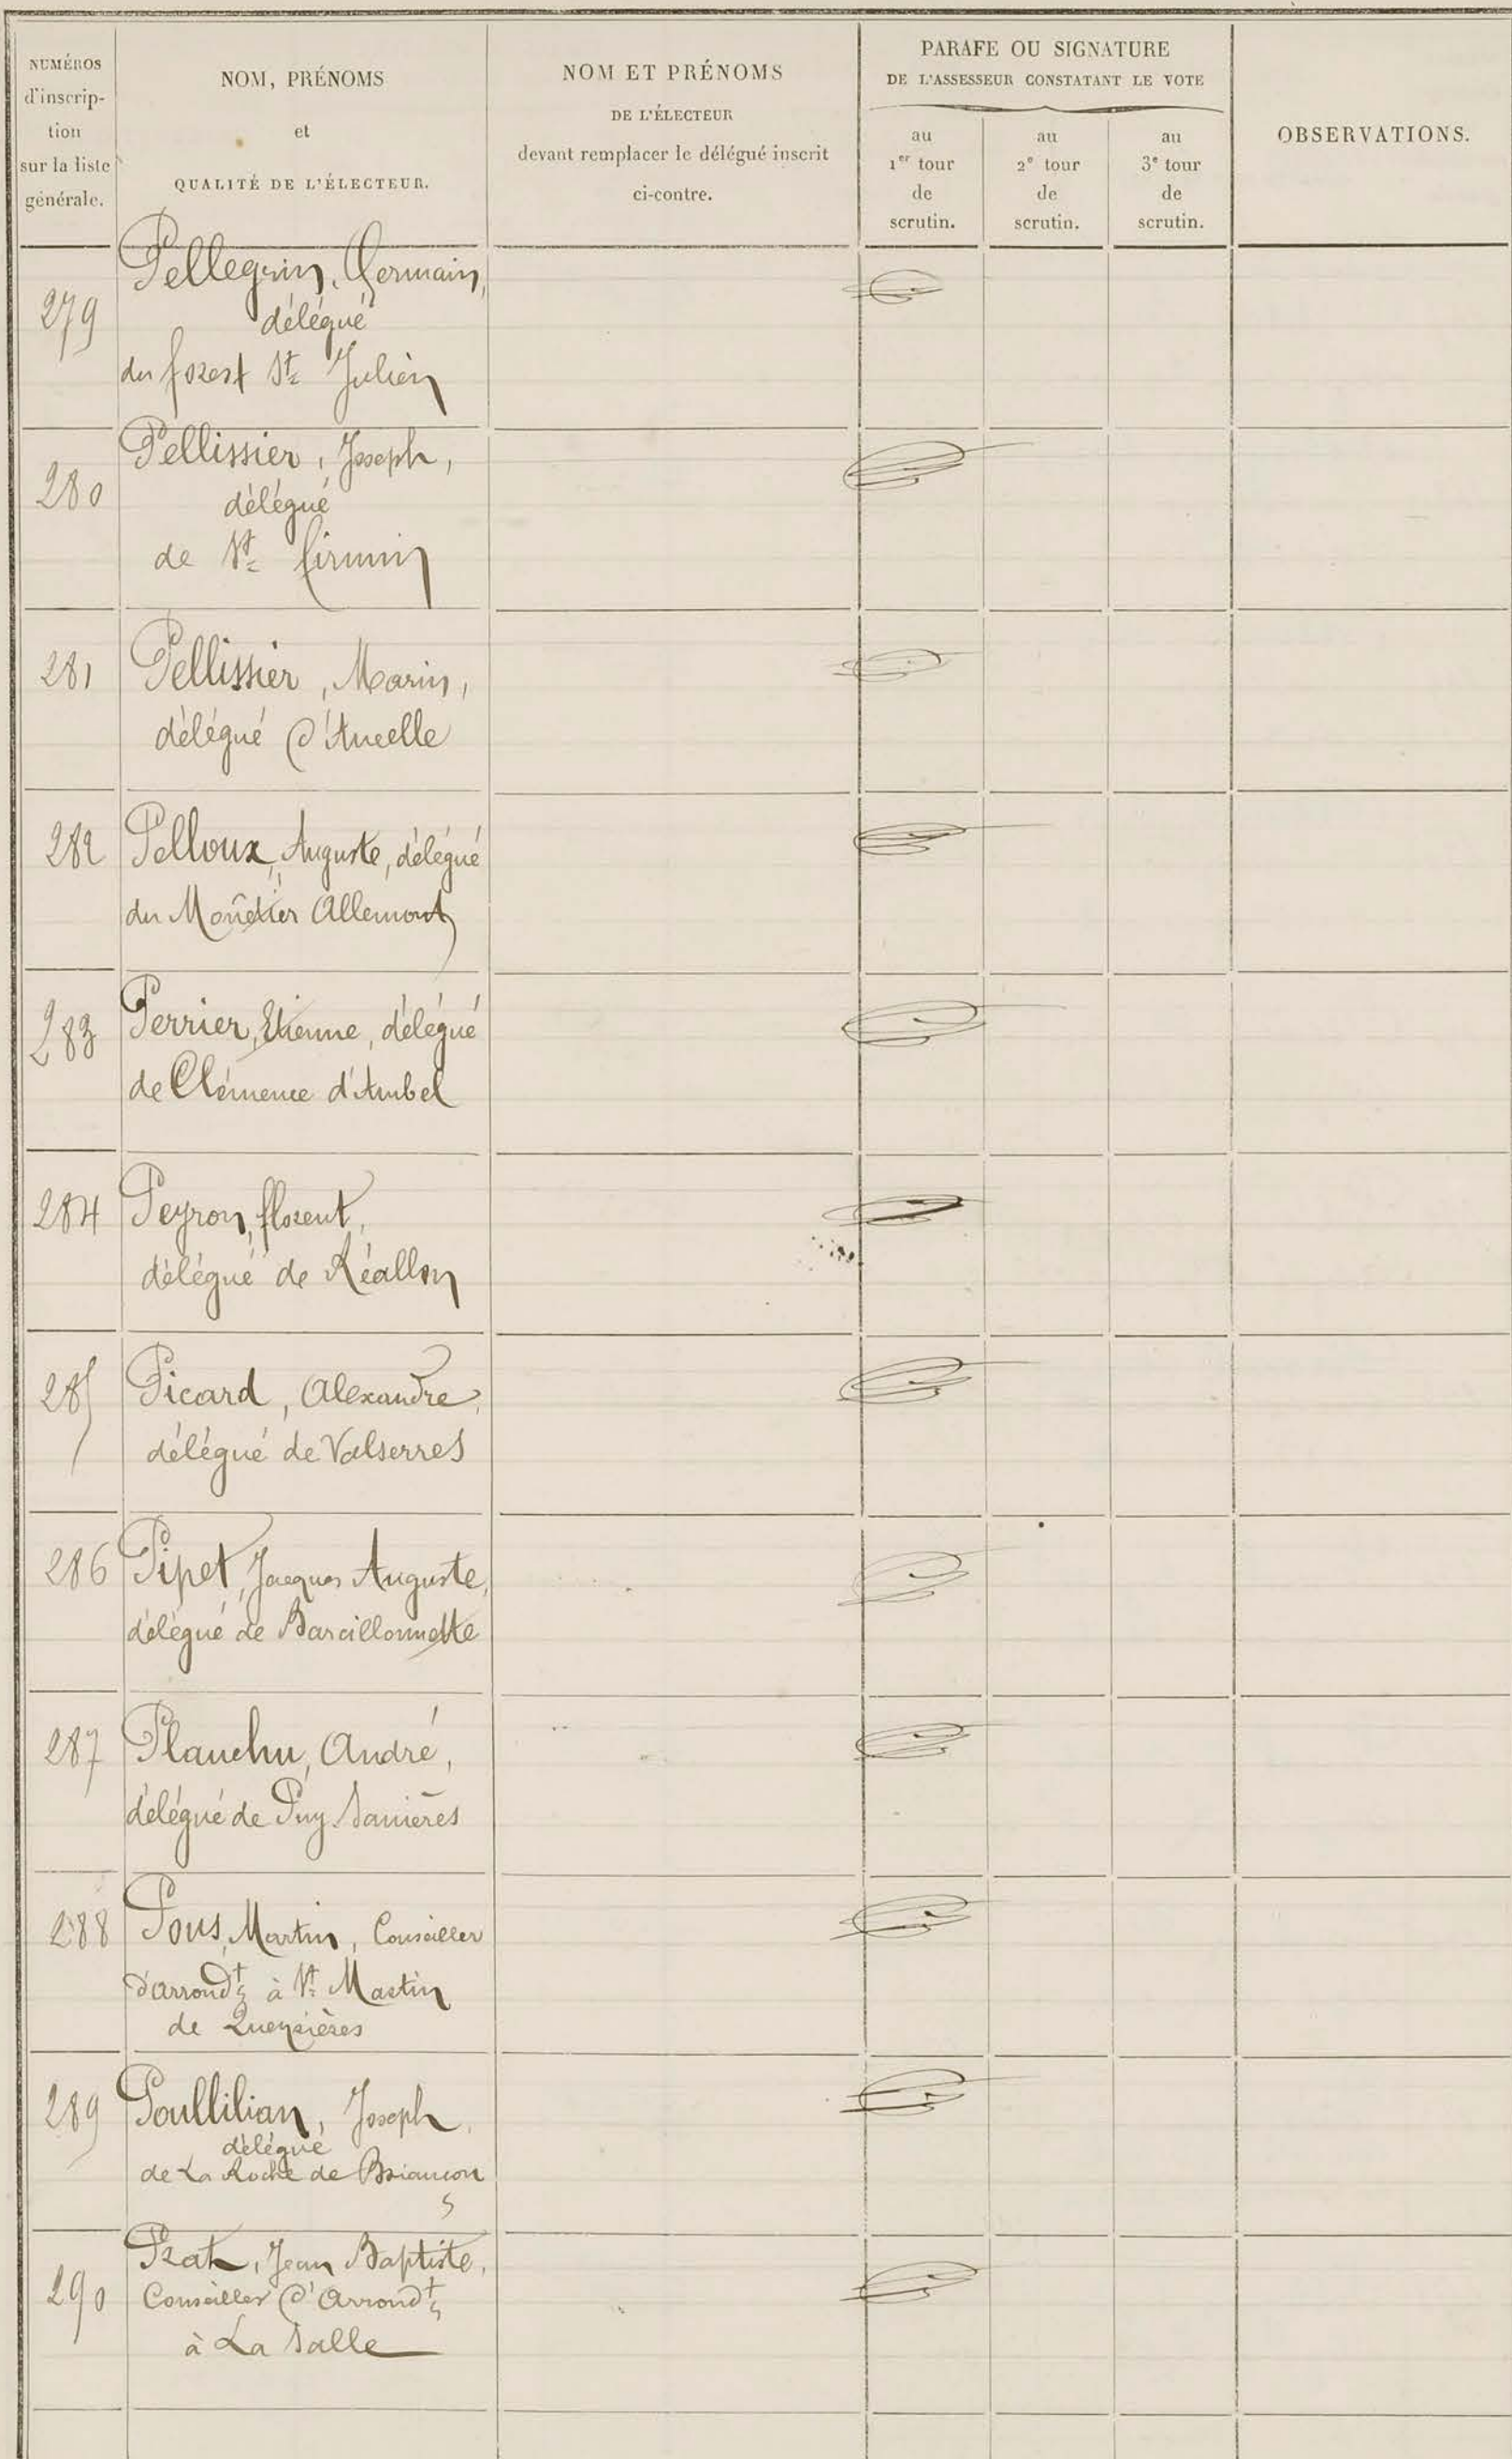 NUMÉROS
d'inscrip-
tion
sur la liste
générale.
NOM, PRÉNOMS
et
QUALITÉ DE L'ÉLECTEUR.
NOM ET PRÉNOMS
DE L'ÉLECTEUR
devant remplacer le délégué inscrit
ci-contre.
PARAFE OU SIGNATURE
DE L'ASSESSEUR CONSTATANT LE VOTE
au
1er tour
de
scrutin.
au
2e tour
de
scrutin.
au
3e tour
de
scrutin.
OBSERVATIONS.
279
Pellegrin, Germain,
délégué
du forest St Julien
280
Pellissier, Joseph,
délégué
de St firmin
281
Pellissier, Marin,
délégué d'Ancelle
282
Pelloux, Auguste, délégué
du Monêtier Allemont
283
Perrier, Etienne, délégué
de Clémence d'Ambel
284
Peyron, florent,
délégué de Réallon
285
Picard, Alexandre,
délégué de Valserres
286
Pipet, Jacques Auguste,
délégué de Barcillonnette
287
Planchu, André,
délégué de Puy Sanières
288
Pous, Martin, Conseiller
d'arrondt à St Martin
de Queyrières
289
Poullilian, Joseph,
délégué
de La Roche de Briançon
290
Prat, Jean Baptiste,
Conseiller d'Arrondt
à La Salle